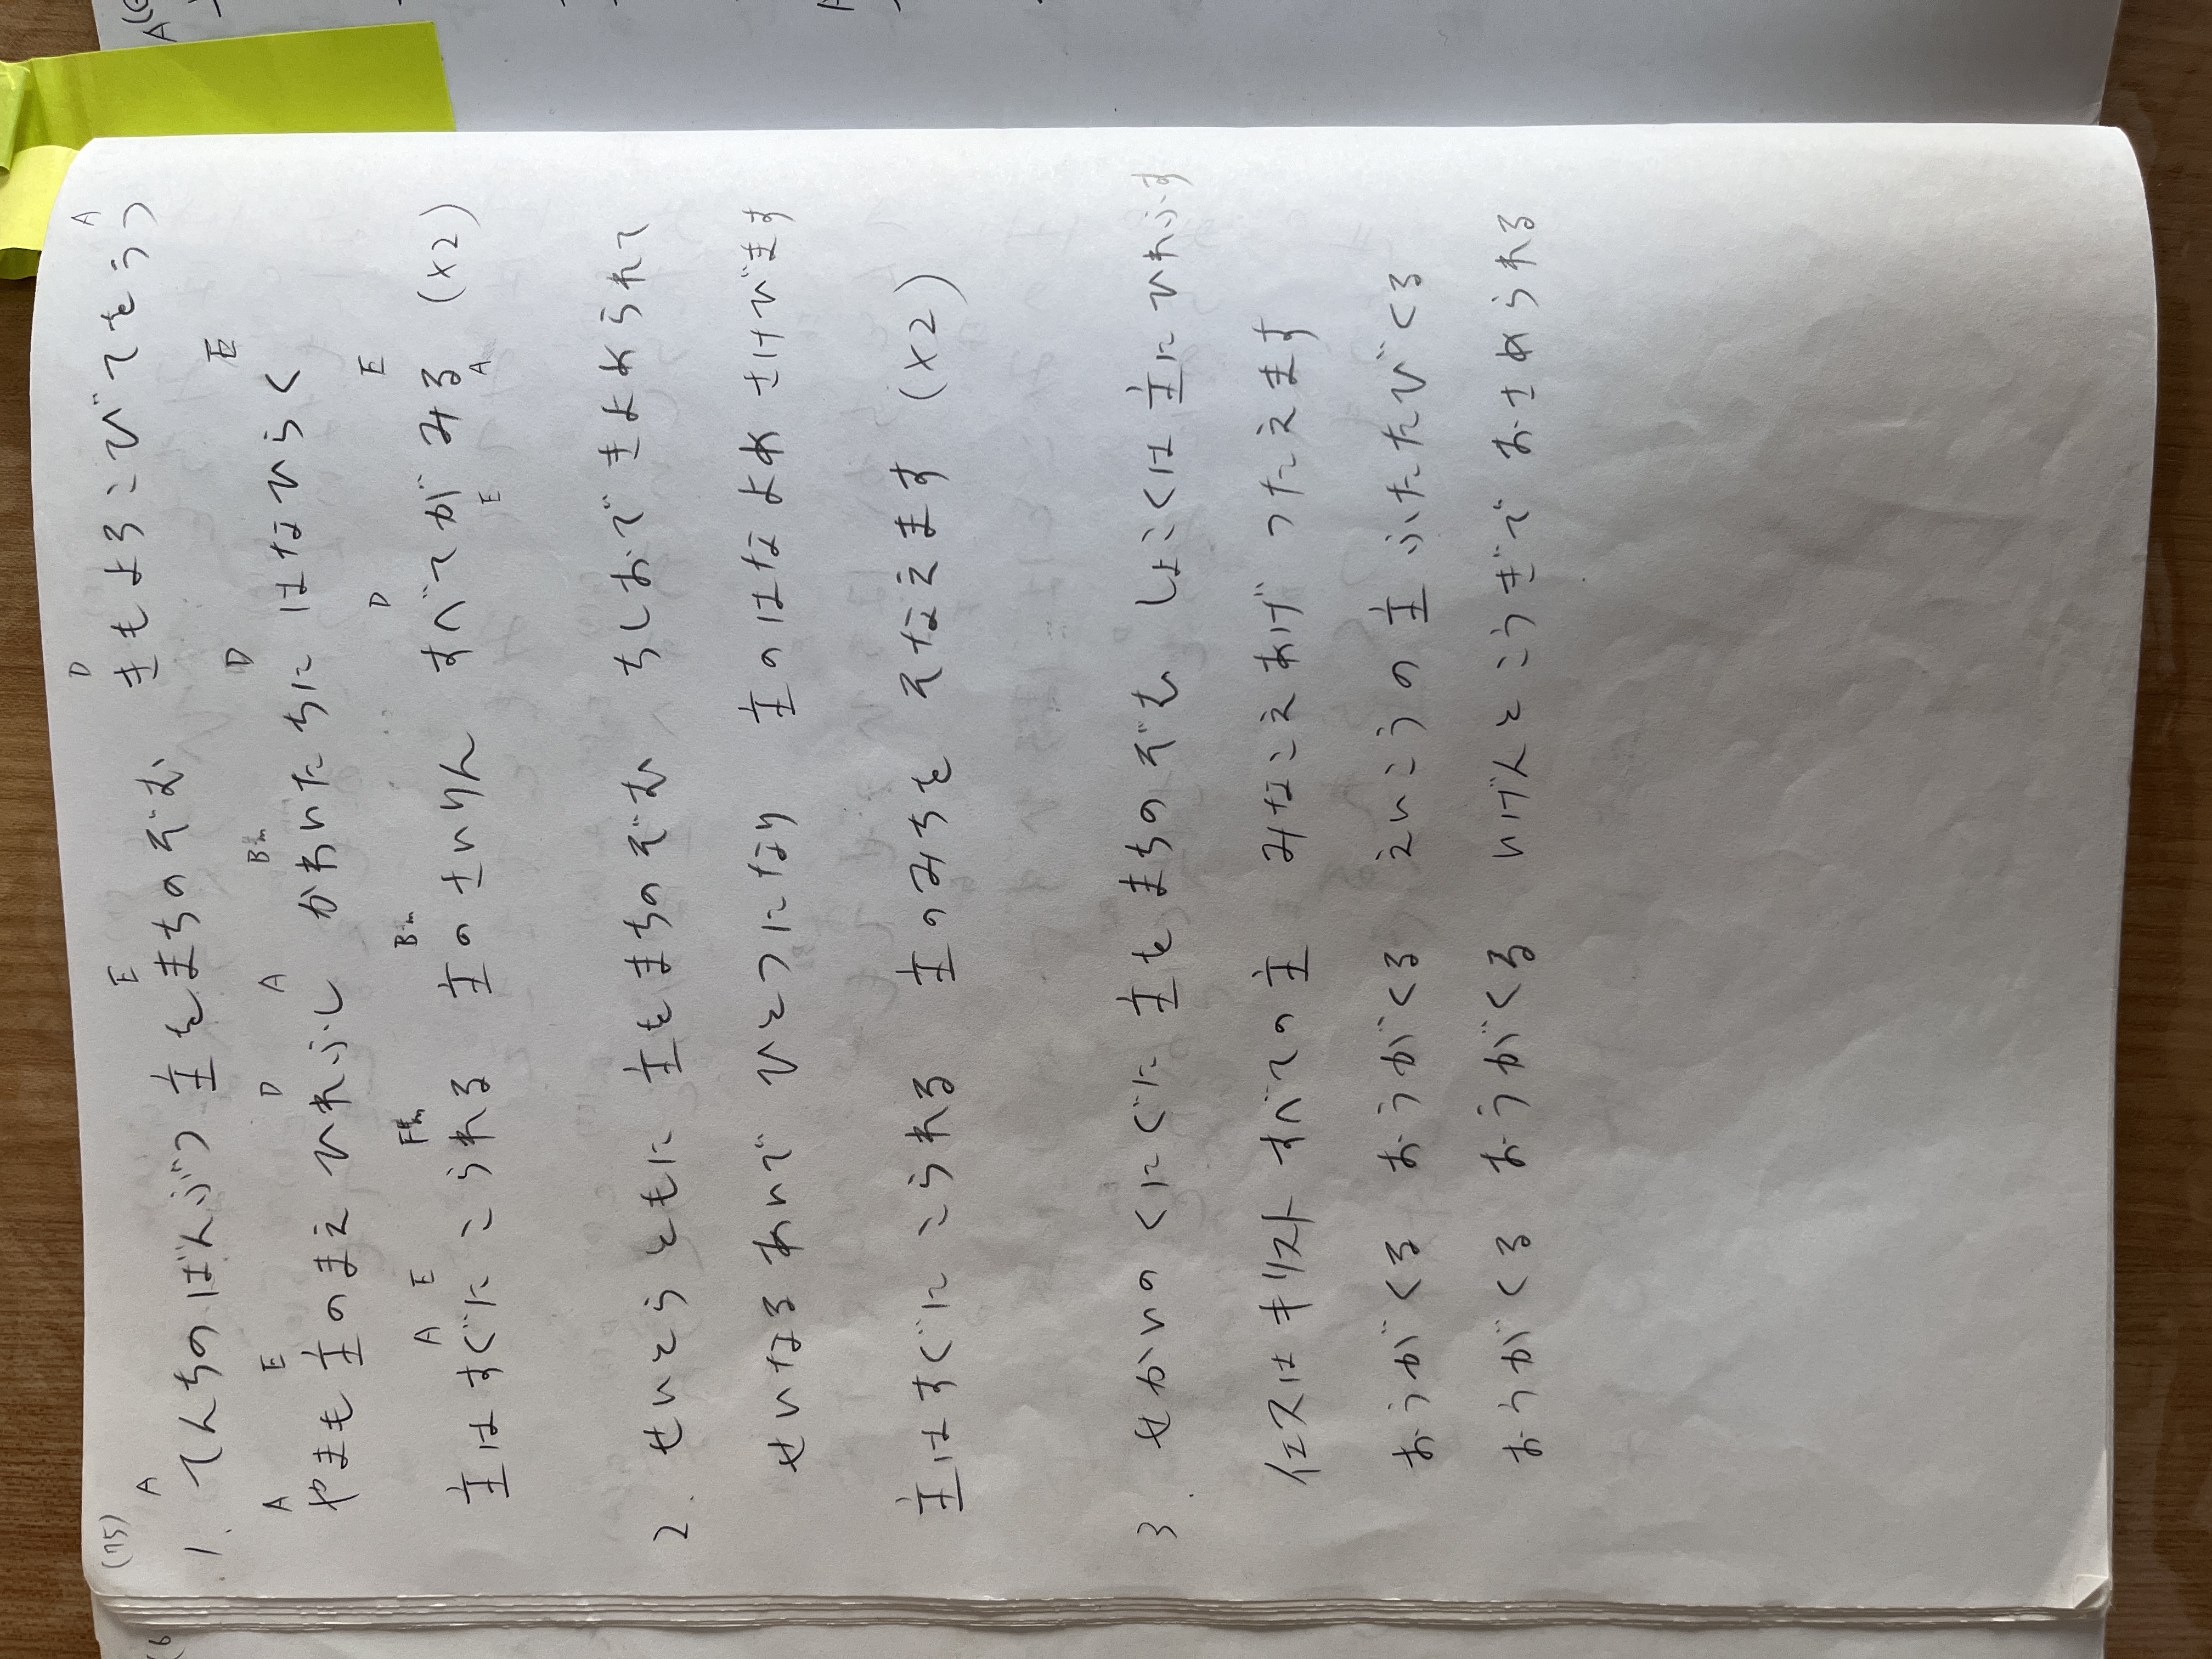 (75)
A E D A
1. てんちのばんぶつ 主をまちのぞむ きもよろこびてをうつ
A E D A Bm D E
やまも主のまえ ひれふし かわいたちに はなひらく
A E F#m Bm D E
主はすぐに こられる 主のさいりん すべてが みる (×2)
E A
2. せいとらともに 主をまちのぞむ ちしおで きよめられて
せいなるあいで ひとつになり 主のはなよめ さけびます
主はすぐに こられる 主のみちを そなえます (×2)
3. せかいのくにぐに 主をまちのぞむ しょこくは 主に ひれふす
イエスは キリスト すべての主 みなこえあげ つたえます
おうがくる おうがくる えいこうの主 ふたたびくる
おうがくる おうがくる いげんとこうぎで おさめられる